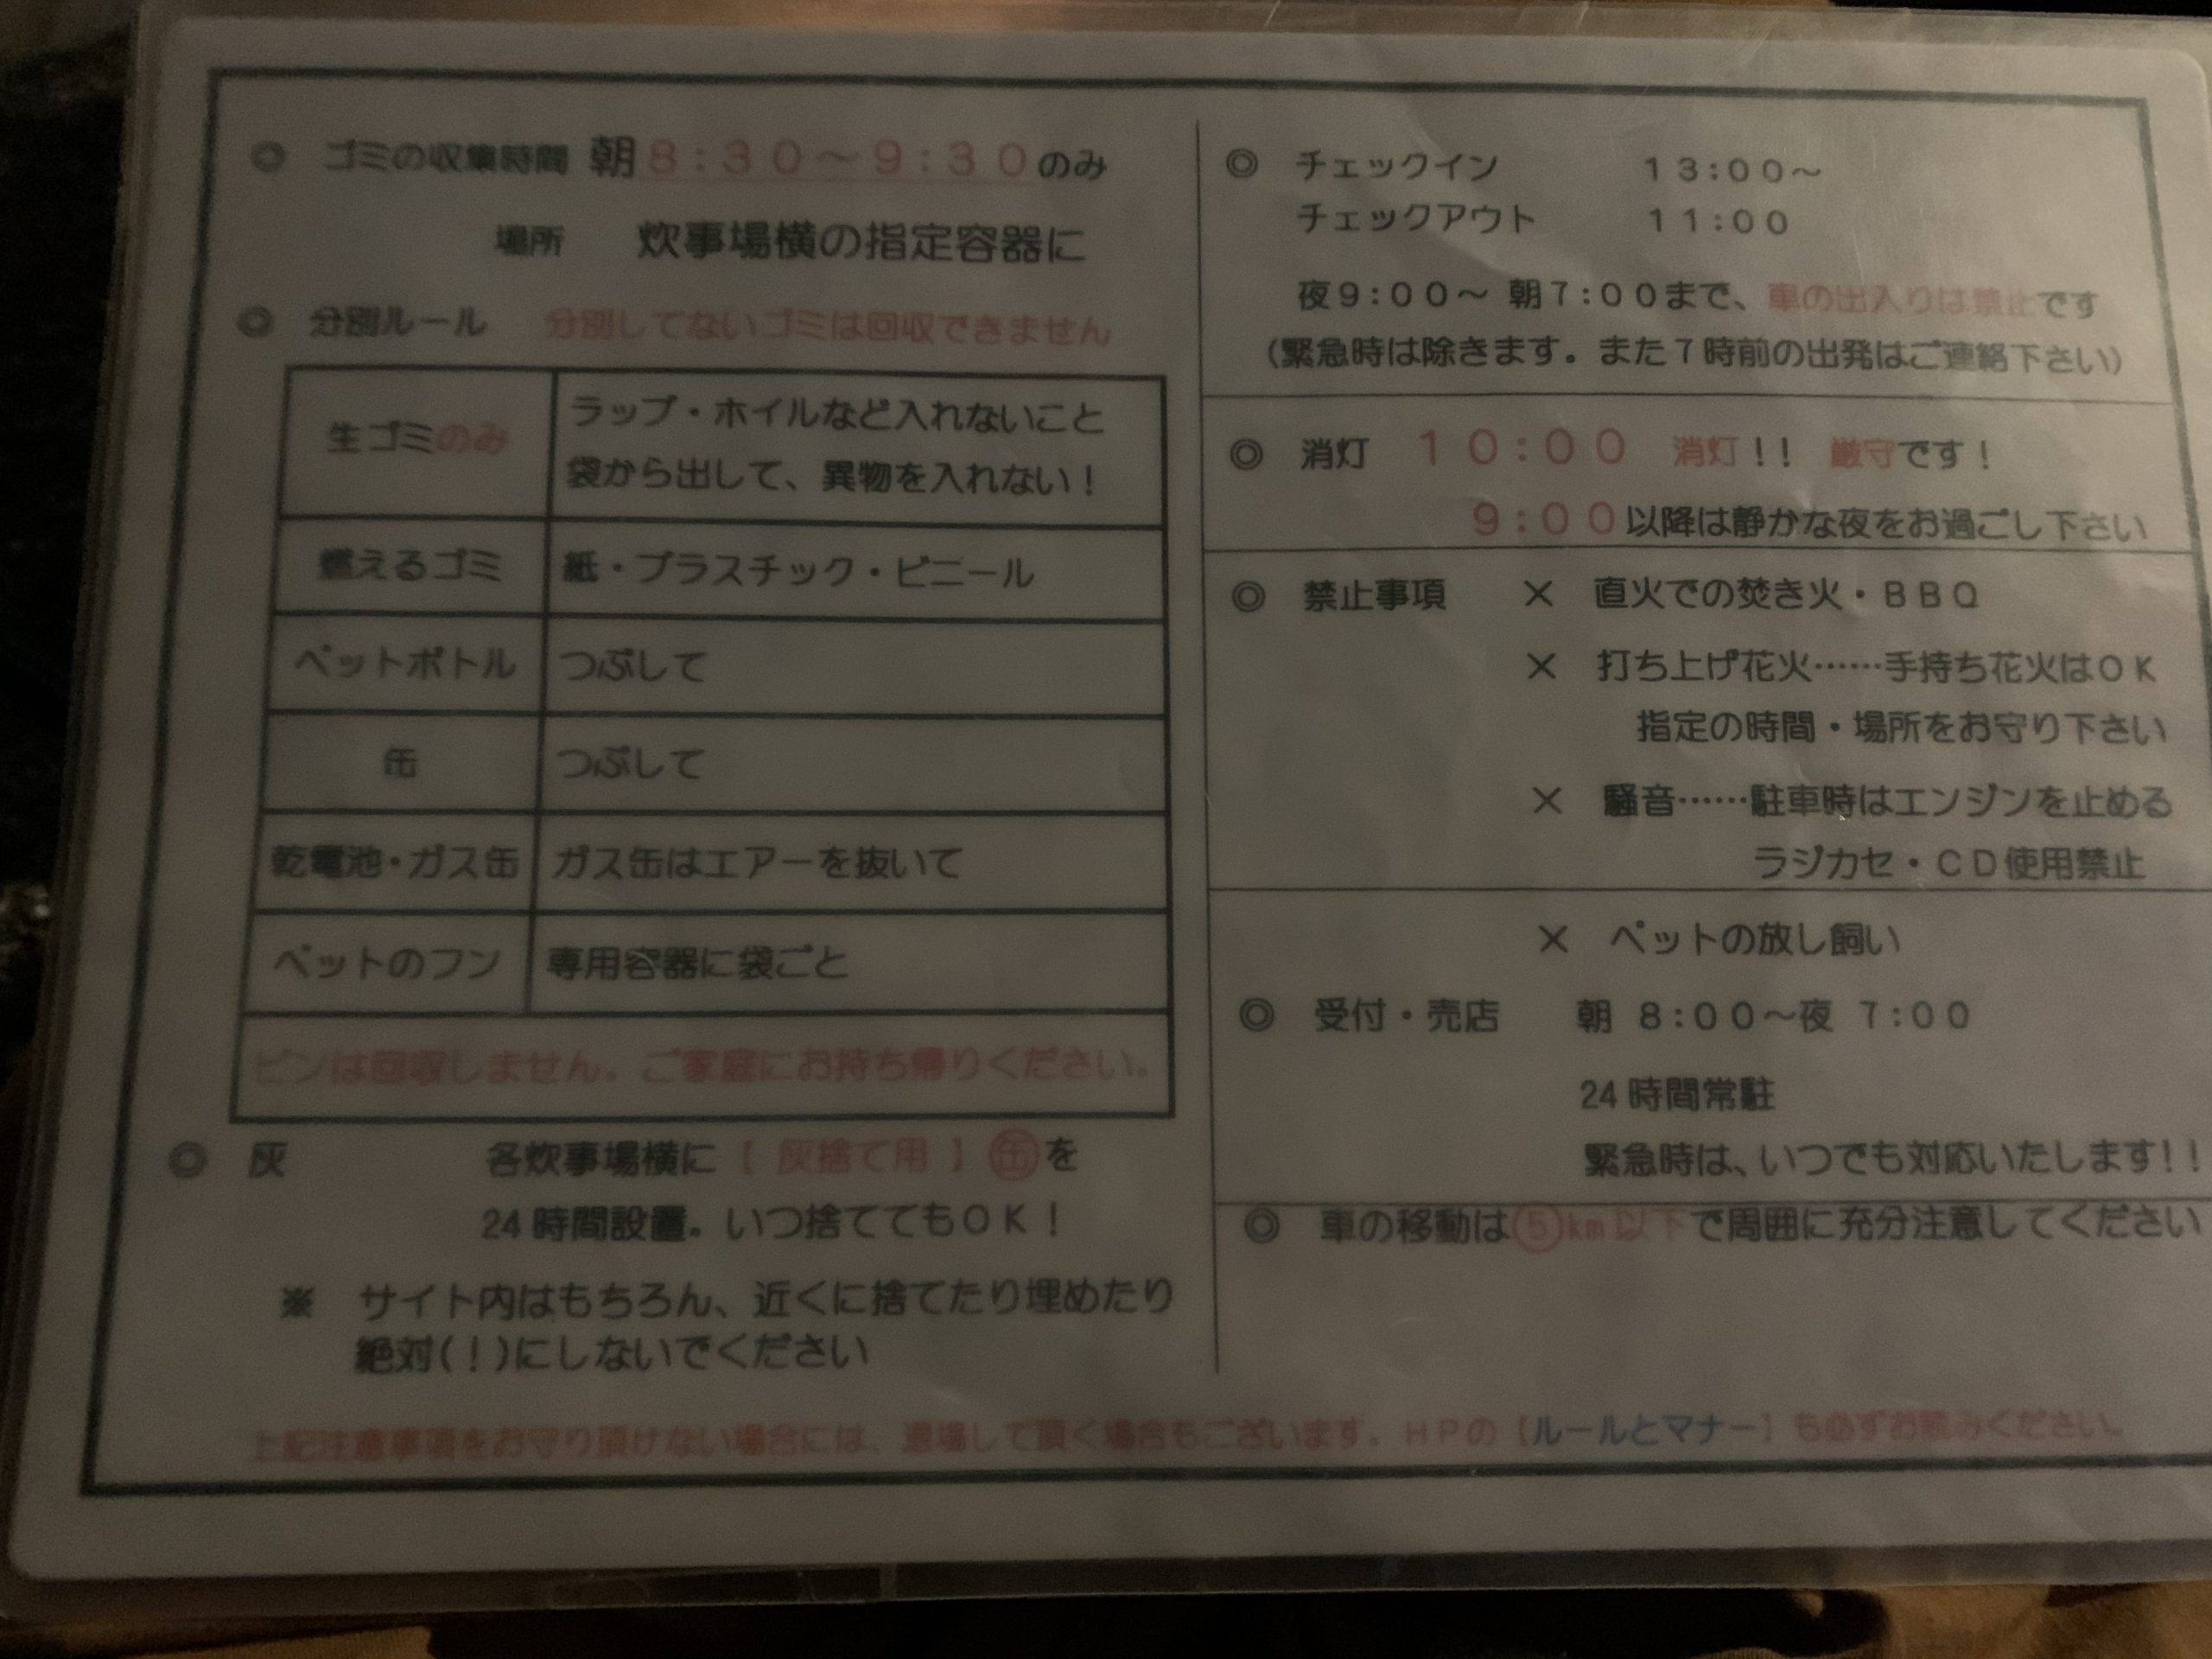 ◎ ゴミの収集時間 朝8:30～9:30のみ
場所 炊事場横の指定容器に
◎ 分別ルール 分別してないゴミは回収できません
生ゴミのみ ラップ・ホイルなど入れないこと
袋から出して、異物を入れない！
燃えるゴミ 紙・プラスチック・ビニール
ペットボトル つぶして
缶 つぶして
乾電池・ガス缶 ガス缶はエアーを抜いて
ペットのフン 専用容器に袋ごと
ビンは回収しません。ご家庭にお持ち帰りください。
◎ 灰 各炊事場横に【 灰捨て用 】㊎を
24時間設置。いつ捨ててもOK！
※ サイト内はもちろん、近くに捨てたり埋めたり
絶対(！)にしないでください
◎ チェックイン 13:00～
チェックアウト 11:00
夜9:00～ 朝7:00まで、車の出入りは禁止です
(緊急時は除きます。また7時前の出発はご連絡下さい)
◎ 消灯 10:00 消灯!! 厳守です！
9:00以降は静かな夜をお過ごし下さい
◎ 禁止事項 × 直火での焚き火・BBQ
× 打ち上げ花火……手持ち花火はOK
指定の時間・場所をお守り下さい
× 騒音……駐車時はエンジンを止める
ラジカセ・CD使用禁止
× ペットの放し飼い
◎ 受付・売店 朝 8:00～夜 7:00
24時間常駐
緊急時は、いつでも対応いたします!!
◎ 車の移動は⑤km以下で周囲に充分注意してください
上記注意事項をお守り頂けない場合には、退場して頂く場合もございます。HPの【ルールとマナー】も必ずお読みください。